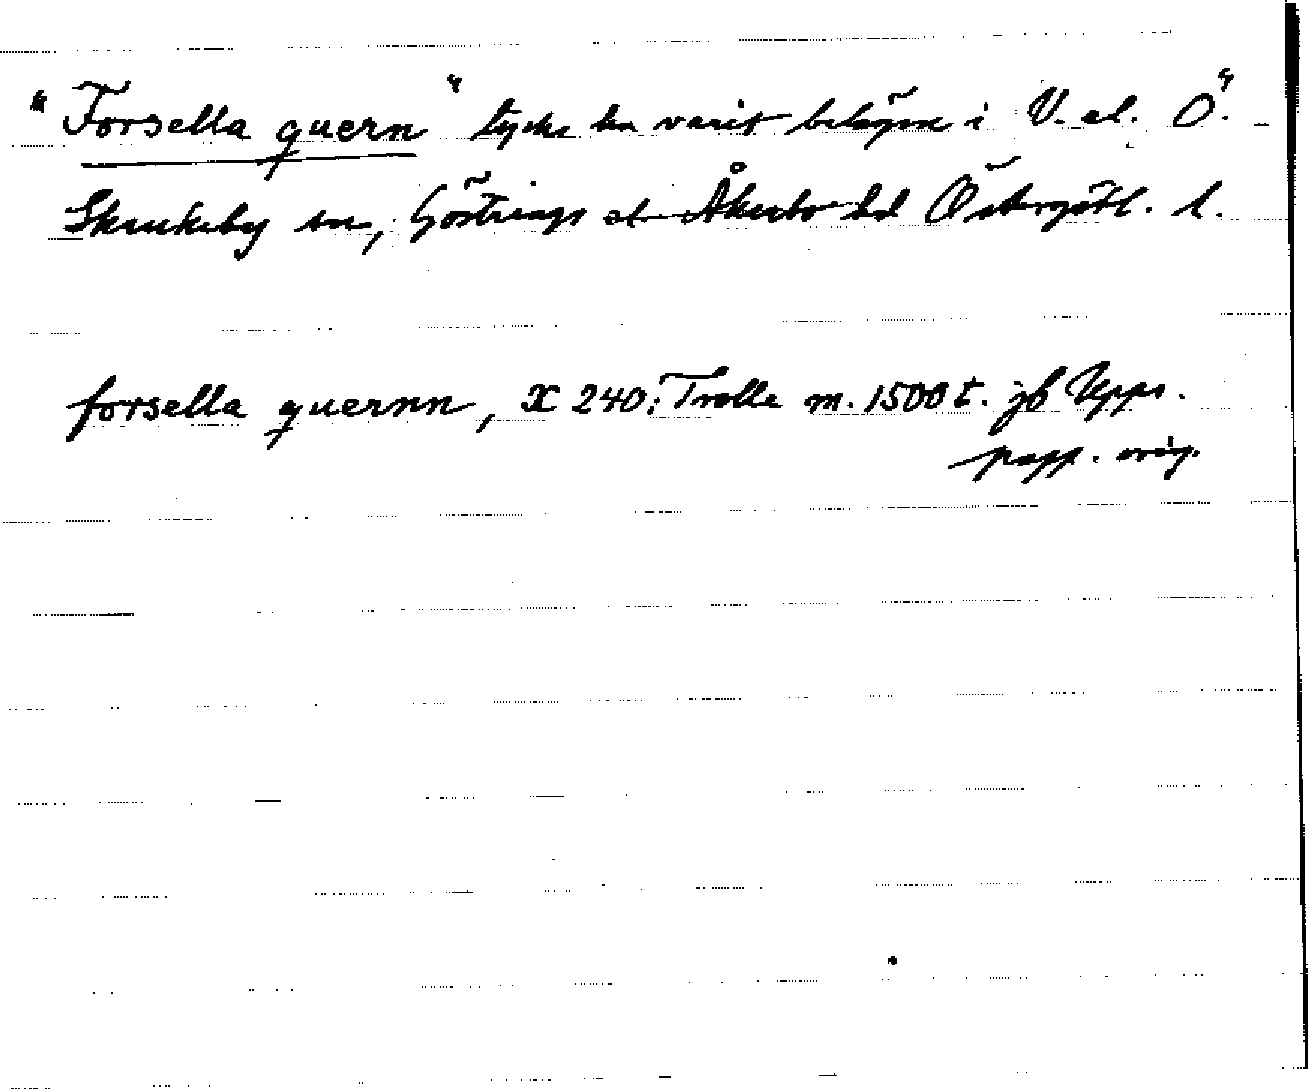 "Forsella quern" tycks ha varit belägen i V. el. Ö.
Skrukeby sn, Göstrings el Åkerbo hd Östergötl. l.
forsella quernn, X 240: Trolle m. 1500 t. jb Upps.
papp. orig.